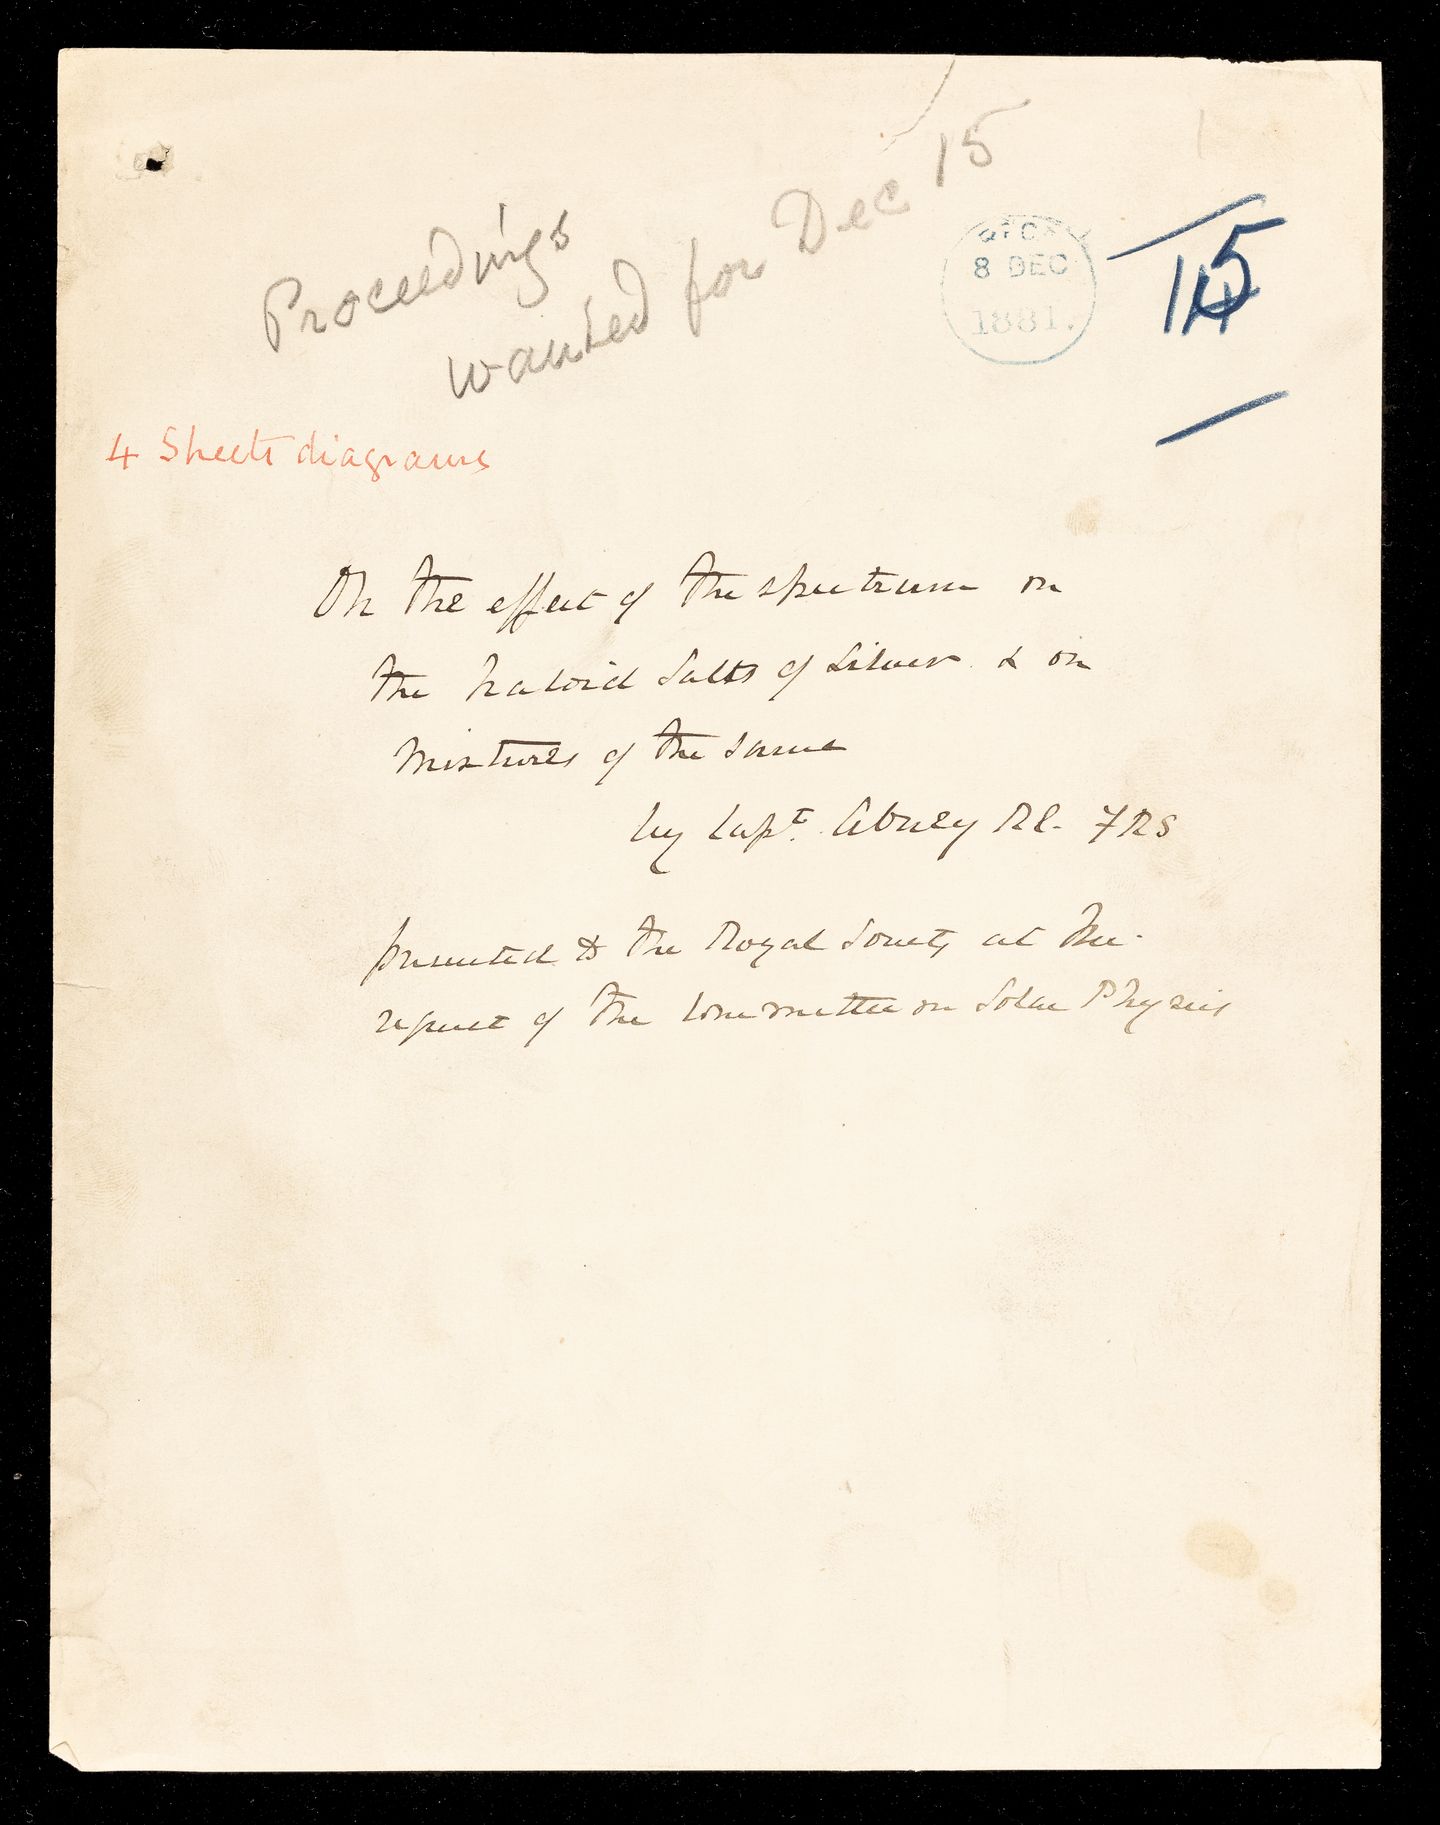 Proceedings
wanted for Dec 15
8 DEC
1881.
15
4 Sheets diagrams
On the effect of the spectrum on
the haloid salts of silver & on
mixtures of the same
by Capt. Abney RE. FRS
presented to the Royal Society at the
request of the Committee on Solar Physics